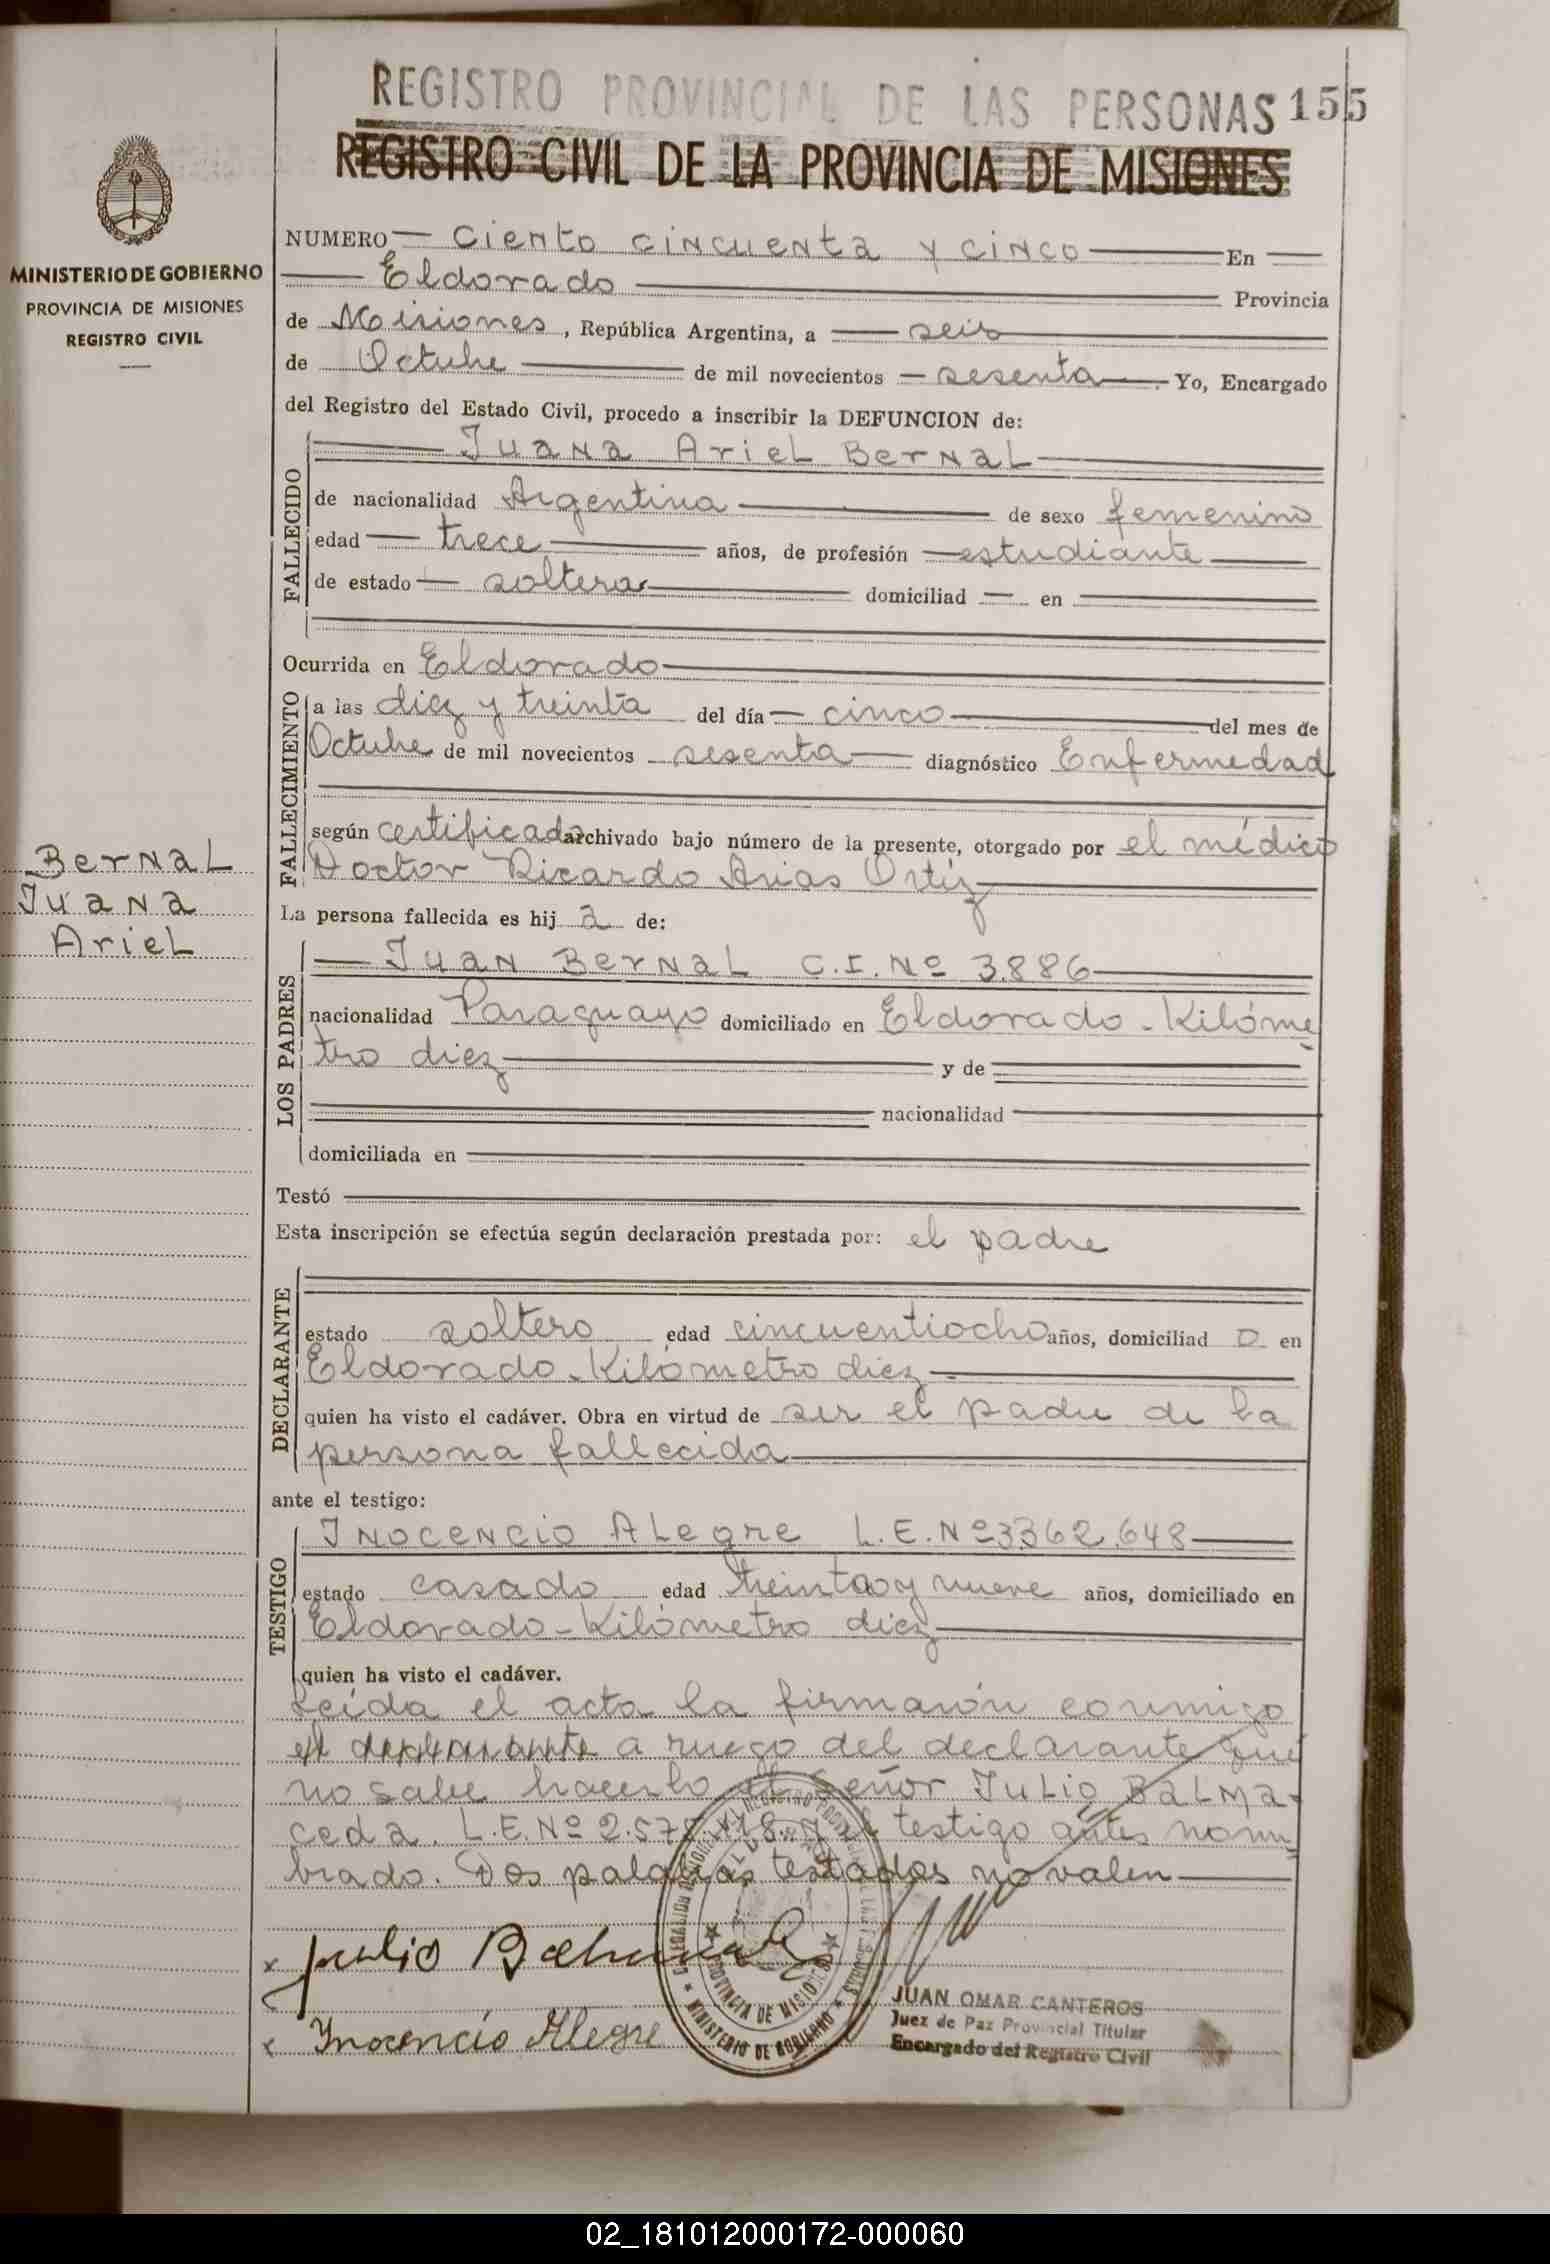 REGISTRO PROVINCIAL DE LAS PERSONAS 155
REGISTRO CIVIL DE LA PROVINCIA DE MISIONES
MINISTERIO DE GOBIERNO
PROVINCIA DE MISIONES
REGISTRO CIVIL
NUMERO Ciento cincuenta y cinco En
Eldorado Provincia
de Misiones, República Argentina, a seis
de Octubre de mil novecientos sesenta. Yo, Encargado
del Registro del Estado Civil, procedo a inscribir la DEFUNCION de:
FALLECIDO
Juana Ariel Bernal
de nacionalidad Argentina de sexo femenino
edad trece años, de profesión estudiante
de estado soltera domiciliad en
Ocurrida en Eldorado
FALLECIMIENTO
a las diez y treinta del día cinco del mes de
Octubre de mil novecientos sesenta diagnóstico Enfermedad
según certificado archivado bajo número de la presente, otorgado por el médico
Doctor Ricardo Arias Ortíz
Bernal
Juana
Ariel
La persona fallecida es hij a de:
LOS PADRES
Juan Bernal C.I. Nº 3.886
nacionalidad Paraguayo domiciliado en Eldorado-Kilóme
tro diez y de
nacionalidad
domiciliada en
Testó
Esta inscripción se efectúa según declaración prestada por: el padre
DECLARANTE
estado soltero edad cincuentiocho años, domiciliad o en
Eldorado-Kilómetro diez
quien ha visto el cadáver. Obra en virtud de ser el padre de la
persona fallecida
ante el testigo:
TESTIGO
Inocencio Alegre L.E. Nº 3362.648
estado casado edad treinta y nueve años, domiciliado en
Eldorado-Kilómetro diez
quien ha visto el cadáver.
Leída el acta la firmarón conmigo
a ruego del declarante que
no sabe hacerlo el Señor Julio Balma-
ceda. L.E. Nº y el testigo antes nom-
brado. Dos palabras testadas no valen
x Julio Balmaceda
x Inocencio Alegre
PROVINCIA DE MISIONES
MINISTERIO DE GOBIERNO
JUAN OMAR CANTEROS
Juez de Paz Provincial Titular
Encargado del Registro Civil
02_181012000172-000060